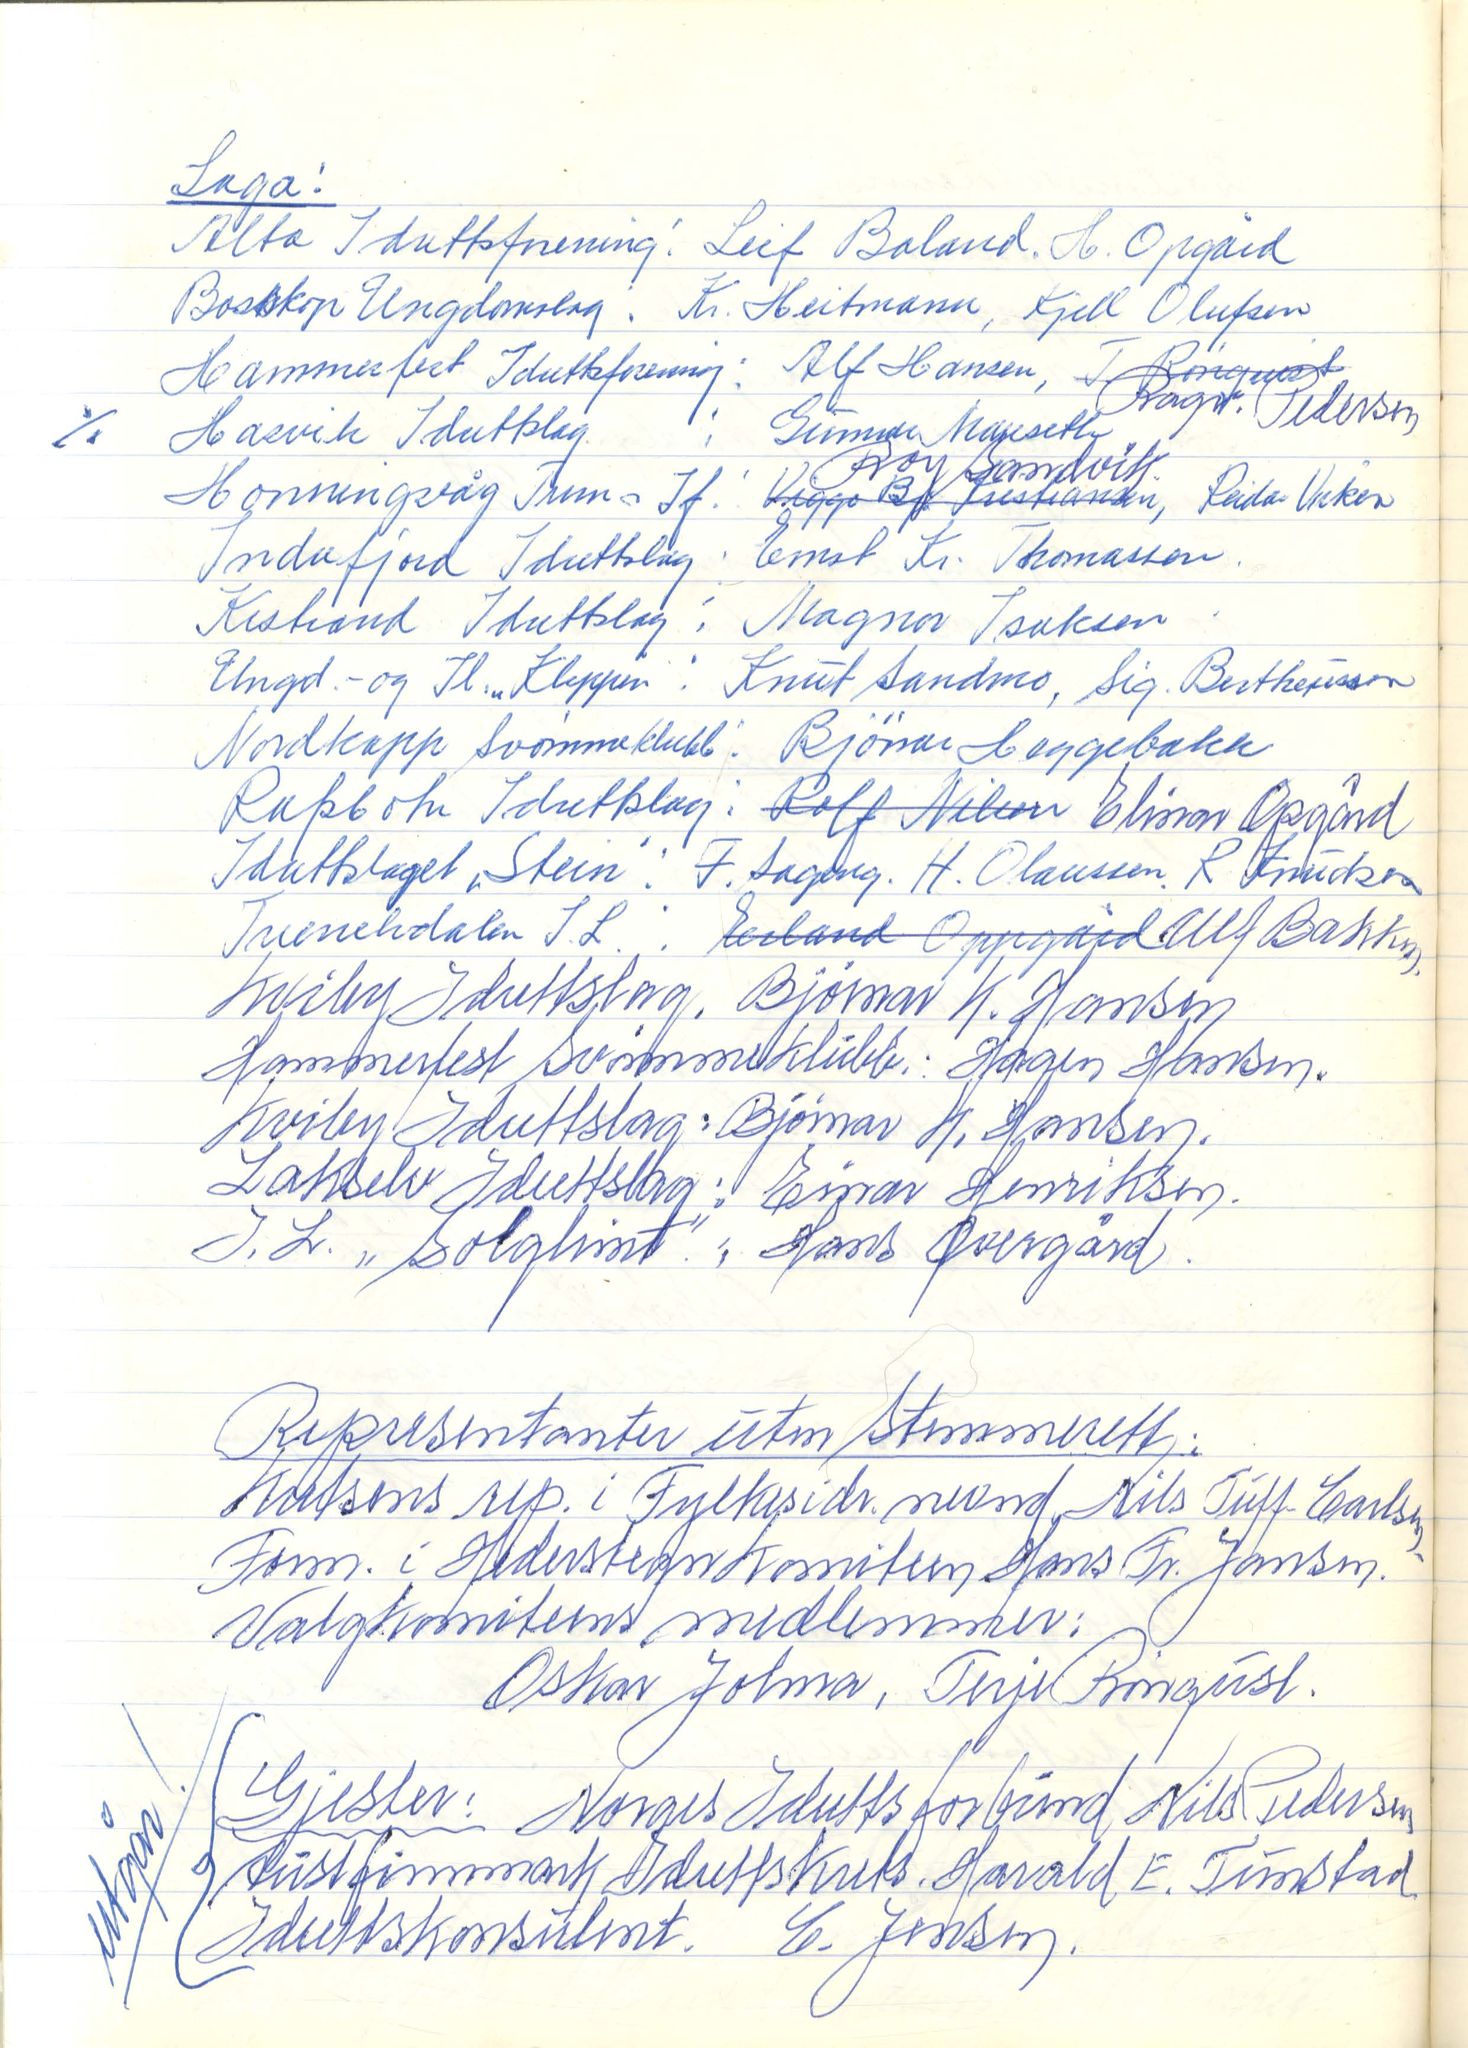 Laga:
Alta Idrettsforening: Leif Boland. H. Opgård
Bossekop Ungdomslag: Kr. Heitmann, Kjell Olufsen
Hammerfest Idrettsforening: Alf Hansen, T. Rönquist
Ragn. Pedersen
% Hasvik Idrettslag : Gunnar Mauseth
Roy Sandvik
Honningsvåg Turn- If: Viggo Kristiansen, Reidar Viken
Indrefjord Idrettslag: Ernst Kr. Thomassen.
Kistrand Idrettslag: Magnor Isaksen
Ungd.- og Il. „Kleppen": Knut Sandmo, Sig. Bertheussen
Nordkapp Svömmeklubb: Björnar Heggebakk
Rafsbotn Idrettslag: Rolf Nilsen Elinar Opgård
Idrettslaget „Stein": F. Sageng. H. Olaussen. R Knudsen
Tverrelvdalen I.L.: Erland Oppgård Ulf Bakken.
Kviby Idrettslag. Björnar H. Hansen
Hammerfest Svömmeklubb: Hagen Hansen.
Kviby Idrettslag: Björnar H. Hansen.
Lakselv Idrettslag: Einar Henriksen.
I.L. „Solglimt": Hans Øvergård.
Representanter uten Stemmerett:
Kretsens rep. i Fylkesidr. nevnd, Nils Tuff-Carlsen
Form. i Hederstegnkomiteen Hans Fr. Jansen.
Valgkomiteens medlemmer:
Oskar Jolma, Terje Rönquist.
Utgår!
Gjester: Norges Idrettsforbund, Nils Pedersen
Austfinnmark Idrettskrets. Harald E. Tunstad
Idrettskonsulent. E. Jensen.